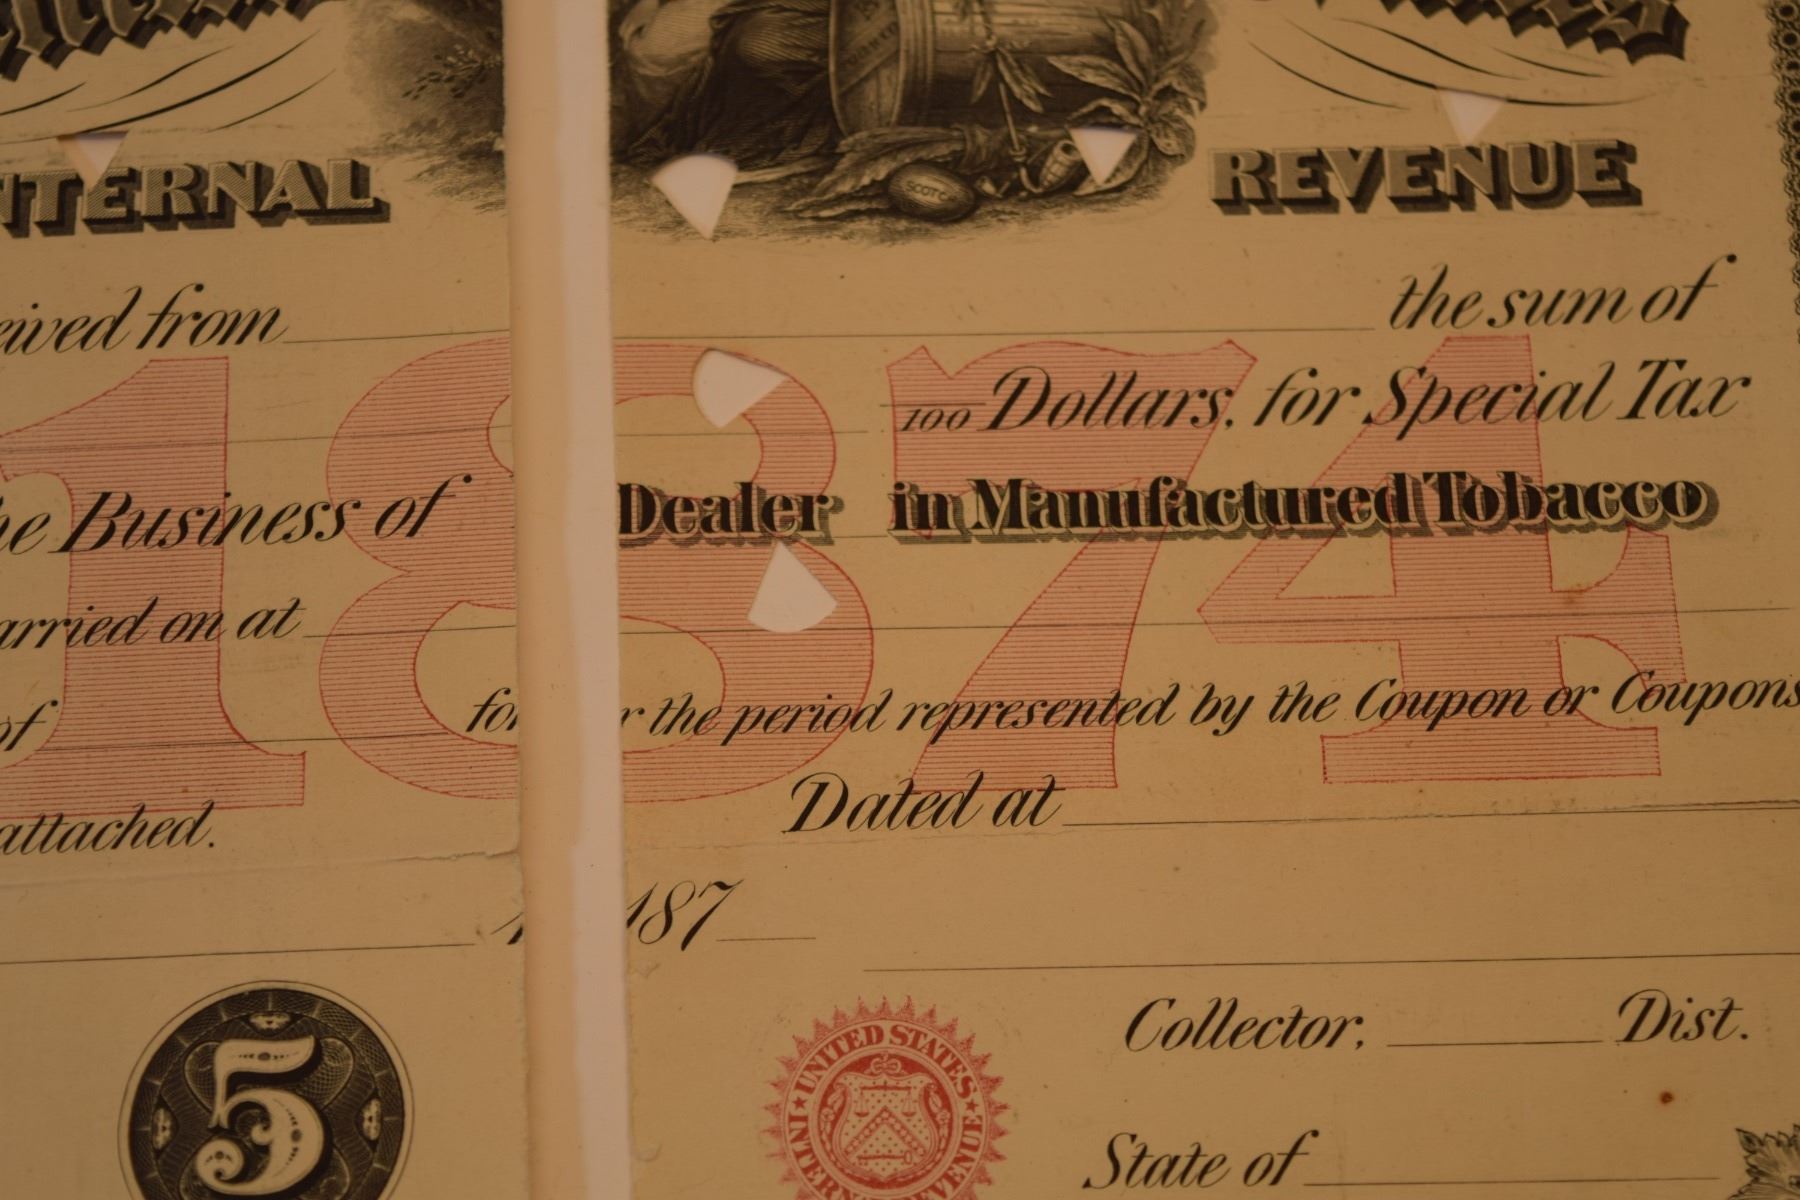 NTERNAL REVENUE
SCOTCH
eived from the sum of
100 Dollars, for Special Tax
he Business of Dealer in Manufactured Tobacco
arried on at
of for the period represented by the Coupon or Coupons
attached. Dated at
187
1874
Collector, Dist.
5
UNITED STATES INTERNAL REVENUE
State of